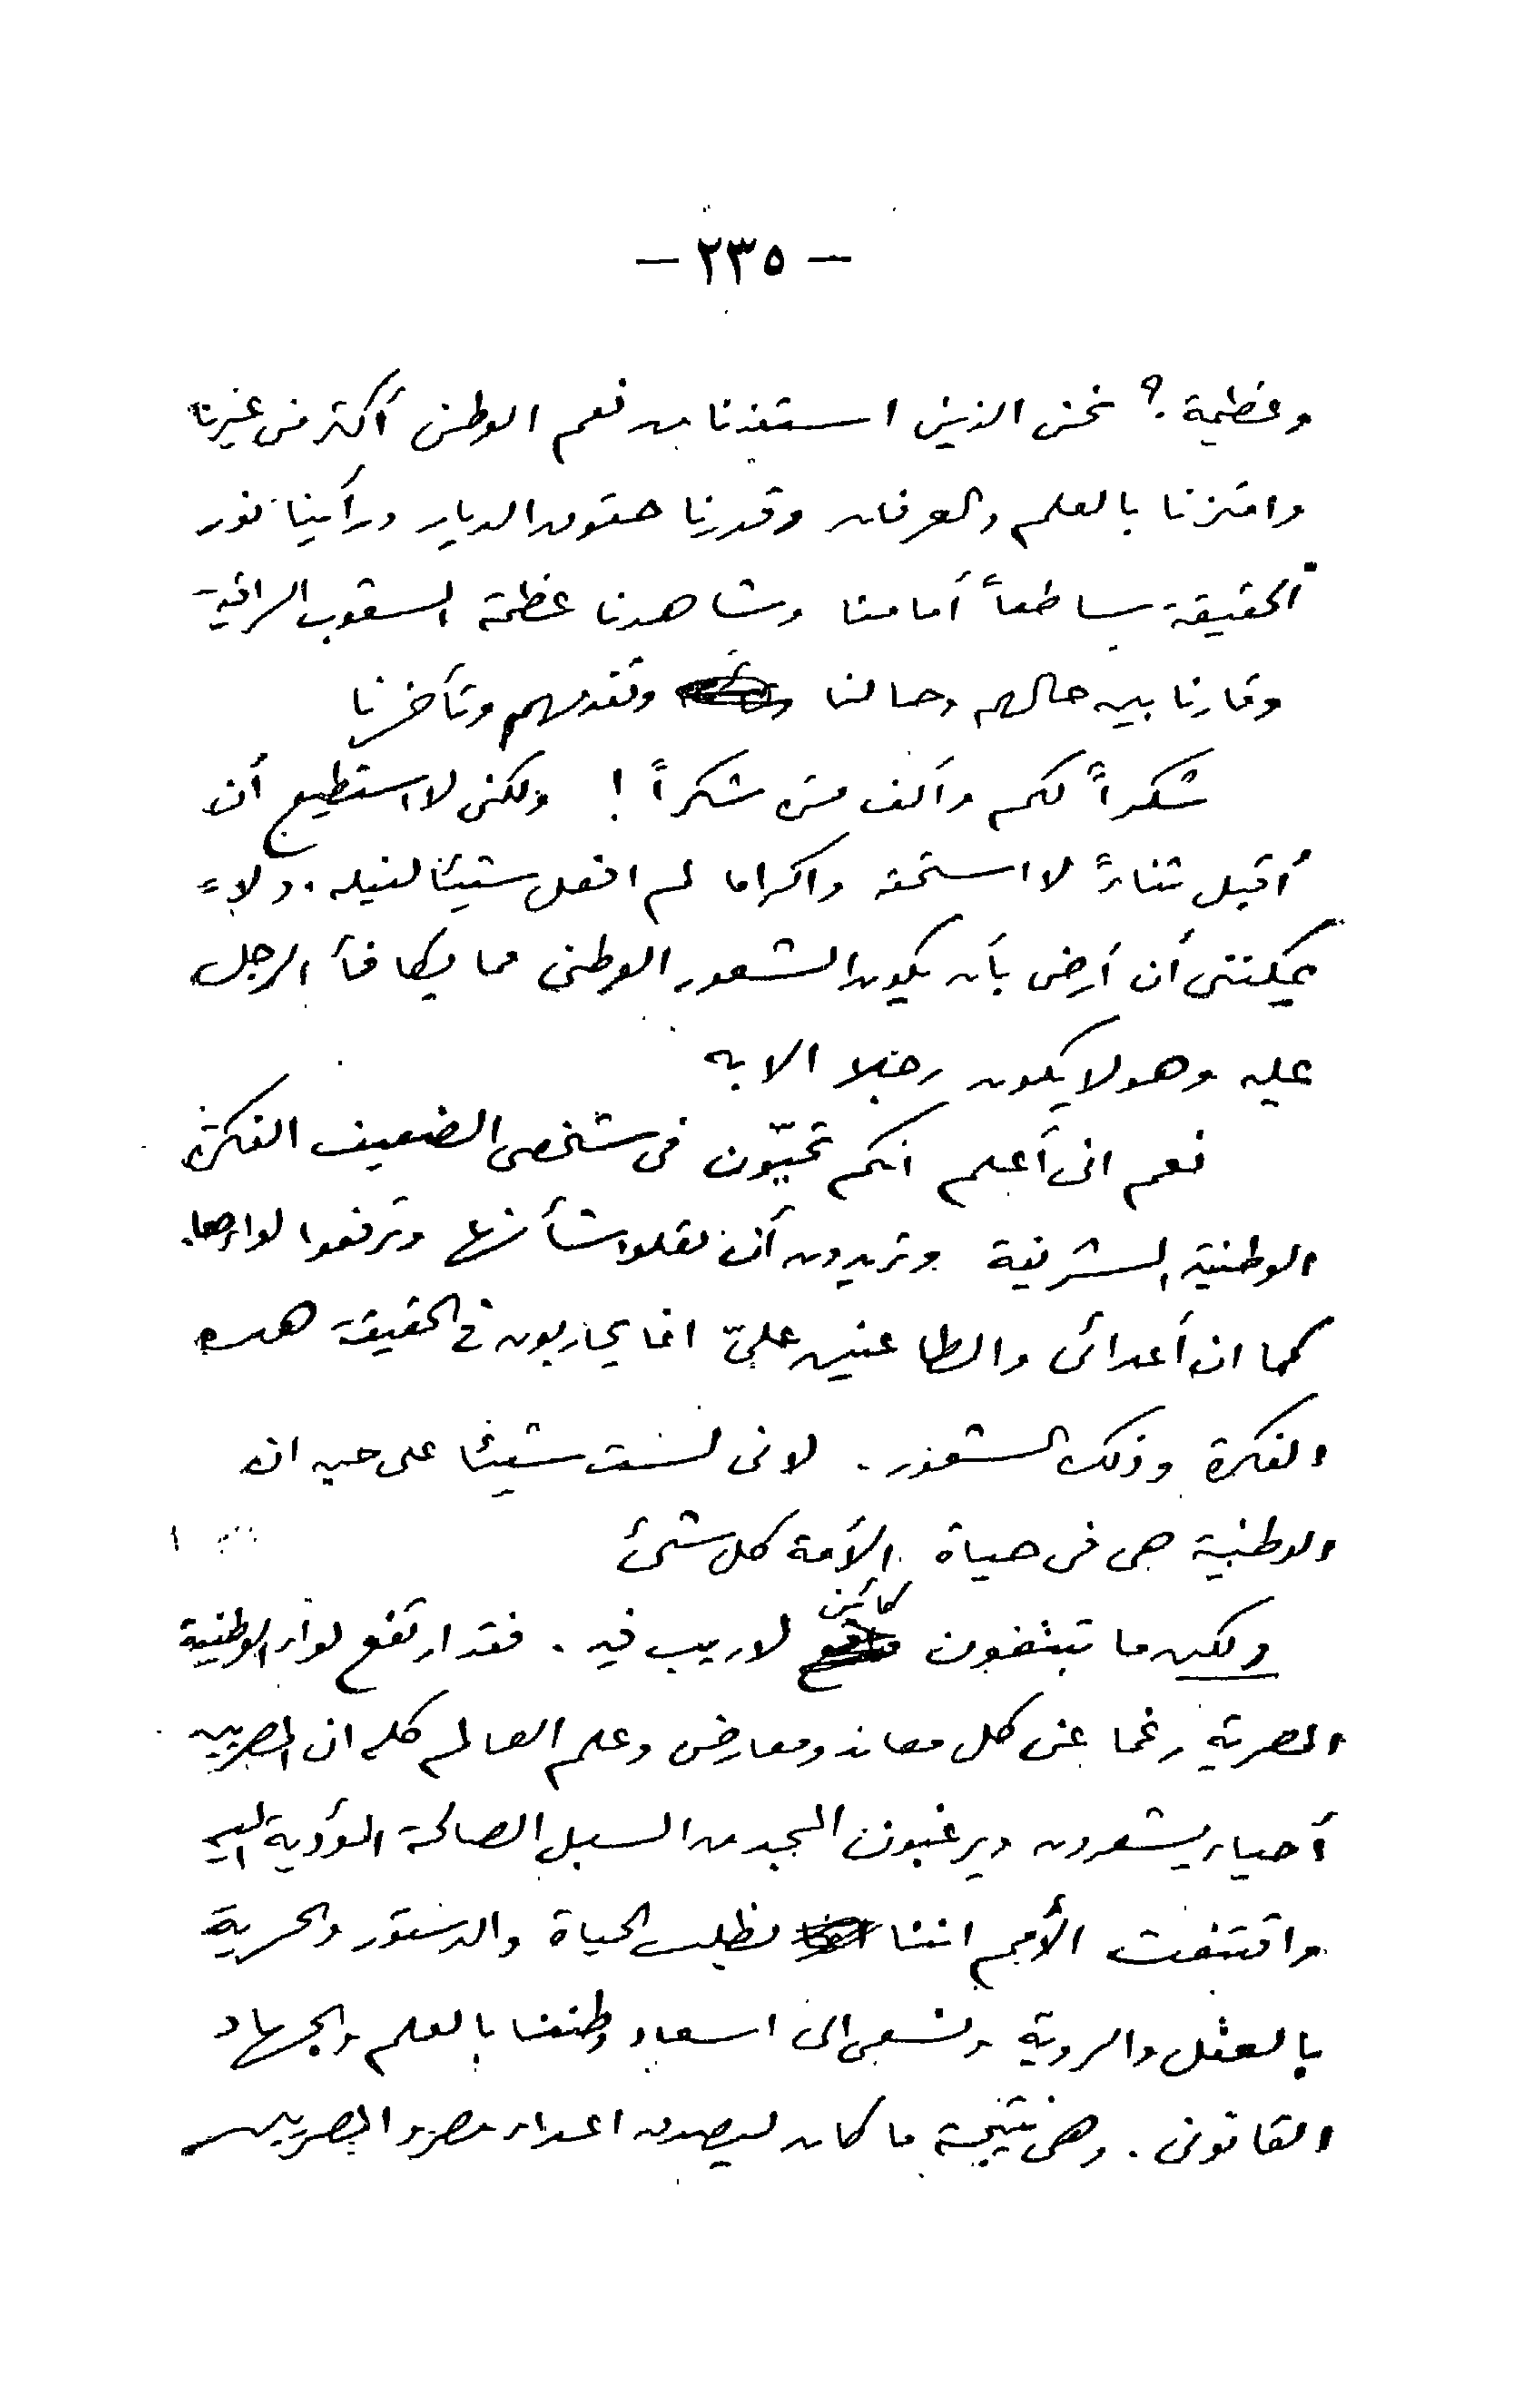 - ٢٣٥ -
وعظيمة؟ نحن الذين استفدنا من نعم الوطن أكثر من غيرنا
وامتزنا بالعلم والعرفان وقدرنا حقوق الديار ورأينا نور
الحقيقة ساطعاً أمامنا وشاهدنا عظمة الشعوب الراقية
وقارنا بين حالهم وحالنا وتقدمهم وتأخرنا
شكراً لكم وألف مرة شكراً! ولكنى لا استطيع أن
أقبل ثناءً لا استحقه واكراما لم افعل شيئا لنيله. ولا
يمكننى أن أرضى بأن يكون الشعور الوطنى مما يكافأ الرجل
عليه وهو لا يكون رجلا الا به
نعم انى أعلم انكم تحبّون فى شخصى الضعيف الفكرة
الوطنية الشريفة وتريدون أن تعلوا شأنها وترفعوا لواءها.
كما ان أعدائى والطاعنين علىّ انما يحاربون فى الحقيقة هذه
الفكرة وذلك الشعور. لانى لست شيئا على حين ان
الوطنية هى فى حياة الأمة كل شئ
ولكن ما تبتغون كائن لا ريب فيه. فقد ارتفع لواء الوطنية
المصرية رغما عن كل معاند ومعارض وعلم العالم كله ان المصريين
أحياء يشعرون ويرغبون المجد من السبل الصالحة المؤدية اليه
واقتنعت الأمم اننا نطلب الحياة والدستور والحرية
بالعقل والروية ونسعى الى اسعاد وطننا بالعلم والجهاد
القانونى. وهى نتيجة ما كان ليصدق اعداء مصر والمصريين